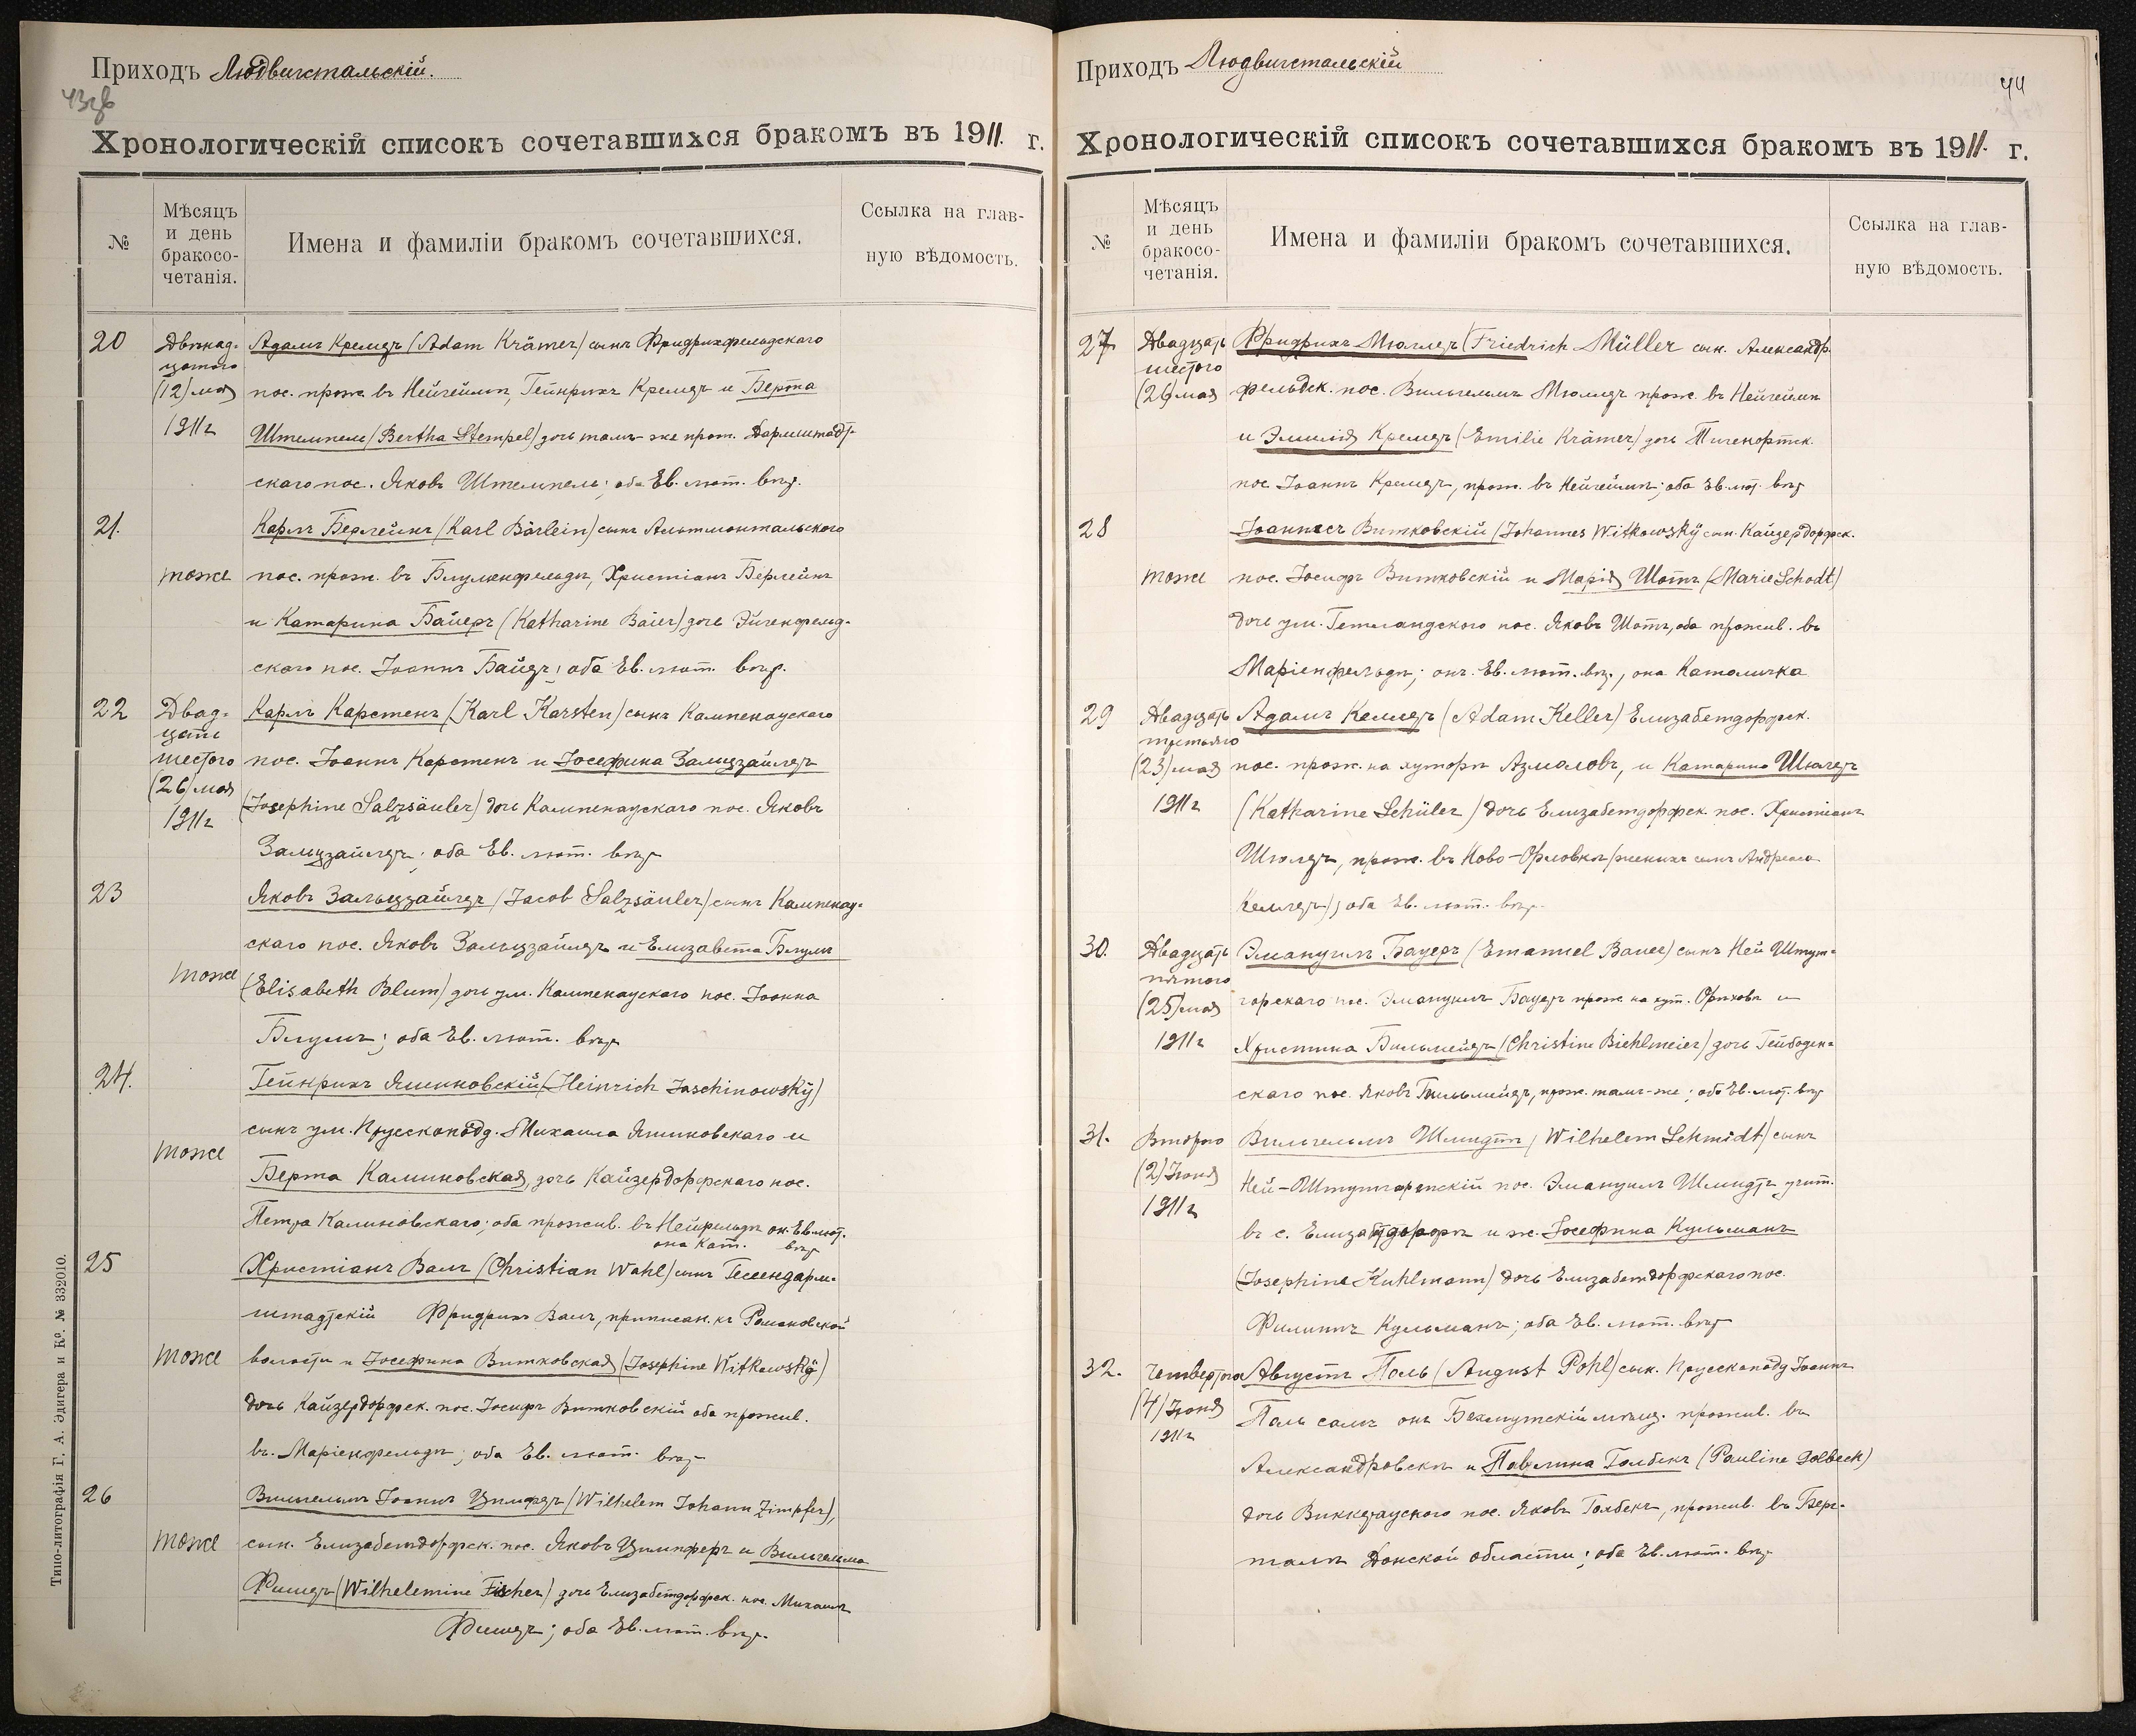 Приходъ Людвигстальскій.
43об
Хронологическій списокъ сочетавшихся бракомъ въ 1911. г.
№
Мѣсяцъ
и день
бракосо-
четанія.
Имена и фамиліи бракомъ сочетавшихся.
Ссылка на глав-
ную вѣдомость.
20 Двѣнад- Адамъ Кремеръ (Adam Krämer) сынъ Фридрихфельдскаго
цатого
(12) мая пос. прож. въ Нейгеймѣ, Гейнрихъ Кремеръ и Берта
1911 г Штемпель (Bertha Stempel) дочь тамъ-же прож. Дармштадт-
скаго пос. Яковъ Штемпель; оба Ев. лют. вѣр.
21. Карлъ Берлейнъ (Karl Bärlein) сынъ Альтмонтальского
тоже пос. прож. въ Блуменфельдѣ, Христіанъ Берлейнъ
и Катарина Байеръ (Katharine Baier) дочь Эйгенфельд-
скаго пос. Іоаннъ Байеръ; оба Ев. лют. вѣр.
22 Двад- Карлъ Карстенъ (Karl Karsten) сынъ Кампенаускаго
цать
шестого пос. Іоаннъ Карстенъ и Іосефина Залцзайлеръ
(26) мая (Josephine Salzsäuler) дочь Кампенаускаго пос. Яковъ
1911 г
Зальцзайлеръ; оба Ев. лют. вѣр
23 Яковъ Зальцзайлеръ (Jacob Salzsäuler) сынъ Кампенау-
скаго пос. Яковъ Зальцзайлеръ и Елизавета Блумъ
тоже (Elisabeth Blum) дочь ум. Кампенаускаго пос. Іоанна
Блумъ; оба Ев. лют. вѣр
24. Гейнрихъ Яшиновскій (Heinrich Jaschinowskÿ)
сынъ ум. Прусскопод. Михаила Яшиновскаго и
тоже Берта Калиновская, дочь Кайзердорфскаго пос.
Петра Калиновскаго; оба прожив. въ Нейфельдѣ он. Ев. лют.
она Кат. вѣр
25 Христіанъ Валъ (Christian Wahl) сынъ Гессендарм-
штадтскій Фридрихъ Валъ, приписан. къ Романовской
тоже волости и Іосефина Витковская (Josephine Witkowskÿ)
дочь Кайзердорфск. пос. Іосифъ Витковскій оба прожив.
въ Маріенфельдѣ; оба Ев. лют. вѣр
26 Вильгельмъ Іоаннъ Цимпферъ (Wilhelem Johann Zimpfer),
тоже сын. Елизабетдорфск. пос. Яковъ Цимпферъ и Вильгельма
Фишеръ (Wilhelemine Fischer) дочь Елизабетдорфск. пос. Михаилъ
Фишеръ; оба Ев. лют. вѣр.
Типо-литографія Г. А. Эдигера и Кº. № 332010.
Приходъ Людвигстальскій
44
Хронологическій списокъ сочетавшихся бракомъ въ 1911. г.
№
Мѣсяцъ
и день
бракосо-
четанія.
Имена и фамиліи бракомъ сочетавшихся.
Ссылка на глав-
ную вѣдомость.
27 Двадцать Фридрихъ Мюллеръ (Friedrich Müller сын. Александр-
шестого
(26) мая фельдск. пос. Вильгельмъ Мюллеръ прож. въ Нейгеймѣ
и Эмилія Кремеръ (Emilie Krämer) дочь Тигенортск.
пос. Іоаннъ Кремеръ, прож. въ Нейгеймѣ; оба Ев. лют. вѣр
28 Іоаннесъ Витковскій (Johannes Witkowskÿ сын. Кайзердорфск.
тоже пос. Іосифъ Витковскій и Марія Шотъ (Marie Schodt)
дочь ум. Гетландского пос. Яковъ Шотъ, оба прожив. въ
Маріенфельдѣ; онъ. Ев. лют. вѣр., она Католичка
29 Двадцать Адамъ Келлеръ (Adam Keller) Елизабетдорфск.
третьяго
(23) мая пос. прож. на хуторѣ Азмоловъ, и Катарина Шюлеръ
1911 г (Katharine Schüler) дочь Елизабетдорфск. пос. Христіанъ
Шюлеръ, прож. въ Ново-Орловкѣ (женихъ сынъ Андреаса
Келлеръ); оба Ев. лют. вѣр.
30. Двадцать Эмануилъ Бауеръ (Emanuel Bauer) сынъ Ней Штут-
пятого
(25) мая гарскаго пос. Эмануилъ Бауеръ прож. на хут. Орѣховъ и
1911 г Христина Бильмейеръ (Christine Biehlmeier) дочь Гейбоден-
скаго пос. Яковъ Бильмейеръ, прож. тамъ-же; оба Ев. лют. вѣр
31. Второго Вильгельмъ Шмидтъ (Wilhelem Schmidt) сынъ
(2) Іюня Ней-Штутгартскій пос. Эмануилъ Шмидтъ учит.
1911 г
въ с. Елизабетдорфѣ и ж. Іосефина Кульманъ
(Josephine Kuhlmann) дочь Елизабетдорфскаго пос.
Филиппъ Кульманъ; оба Ев. лют. вѣр
32. Четвертого Августъ Поль (August Pohl) сын. Прусскопод Іоаннъ
(4) Іюня Поль самъ онъ Бахмутскій мѣщ. прожив. въ
1911 г
Александровскѣ и Павлина Голбекъ (Pauline Golbeck)
дочь Виккерауского пос. Яковъ Голбекъ, прожив. въ Берг-
талѣ Донской области; оба Ев. лют. вѣр.